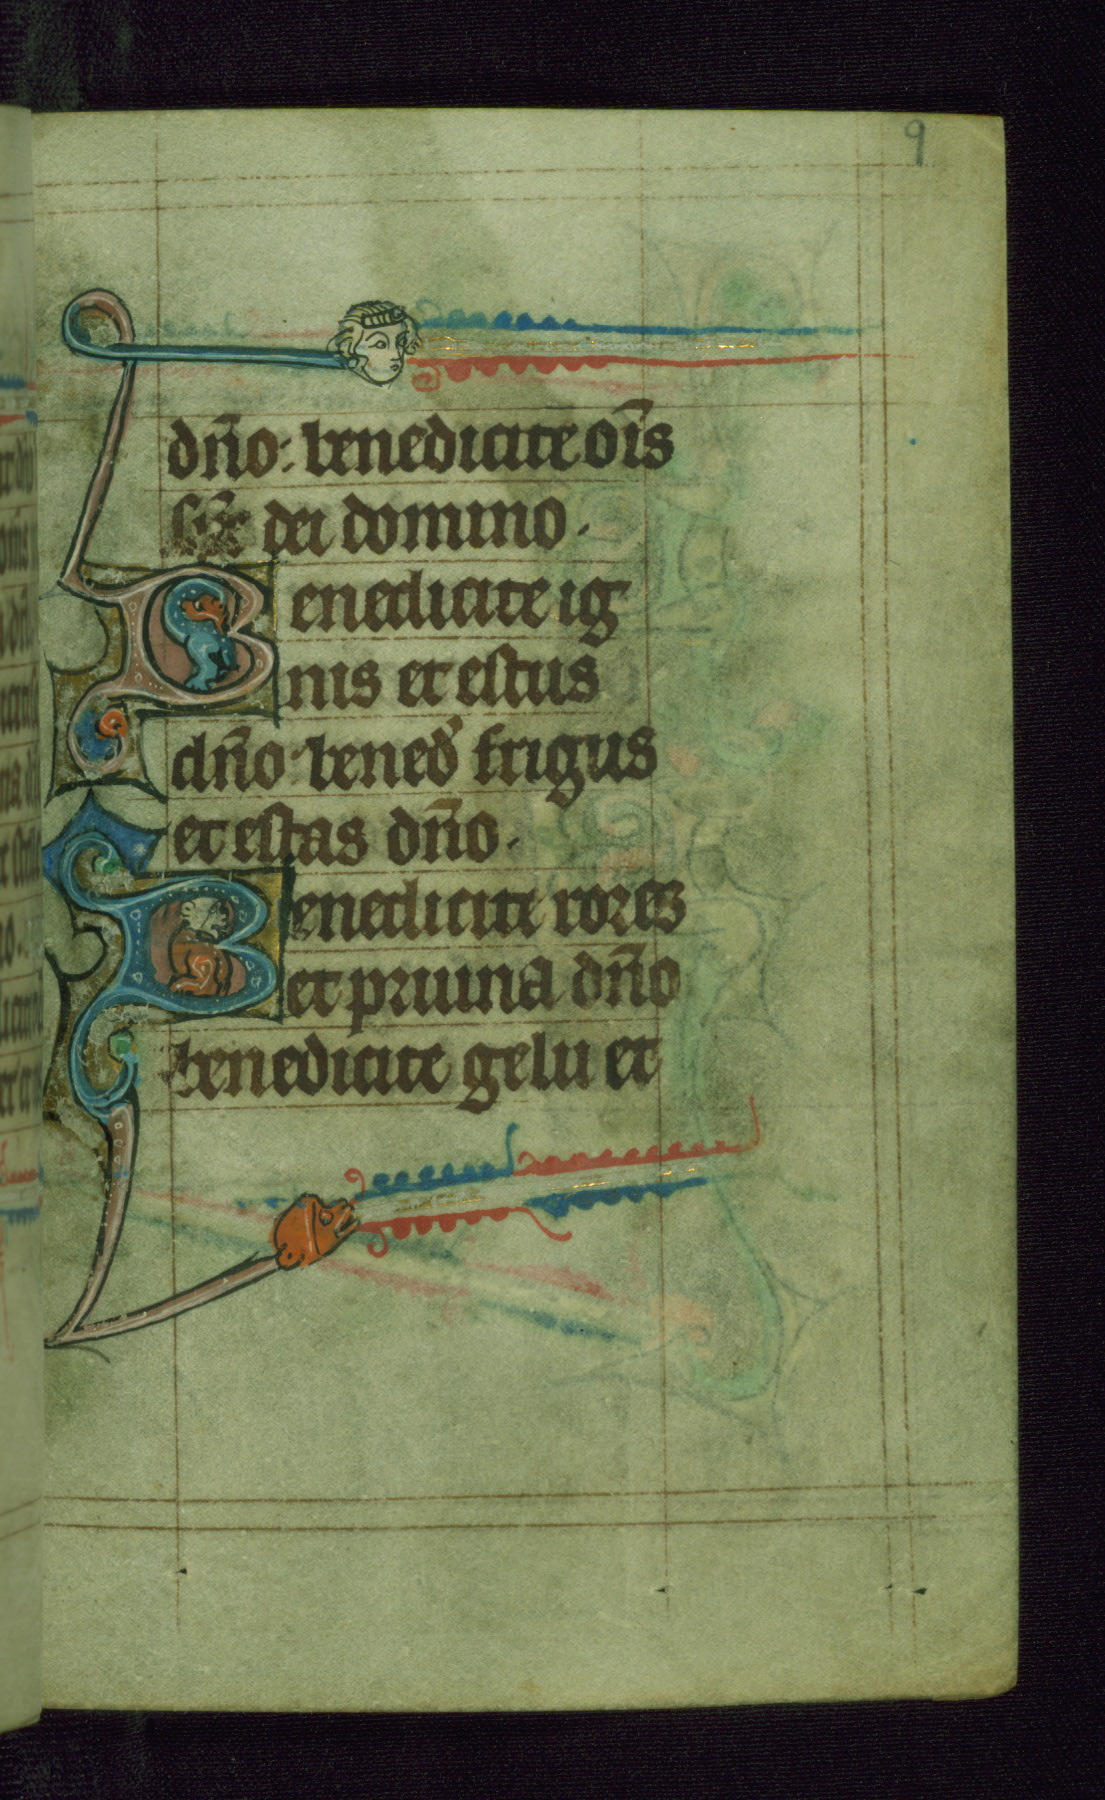 9
dn̄o: benedicite oīs
sp̄s dei domino.
Benedicite ig
nis et estus
dn̄o: bened̕ frigus
et estas dn̄o.
Benedicite rores
et pruina dn̄o
benedicite gelu et